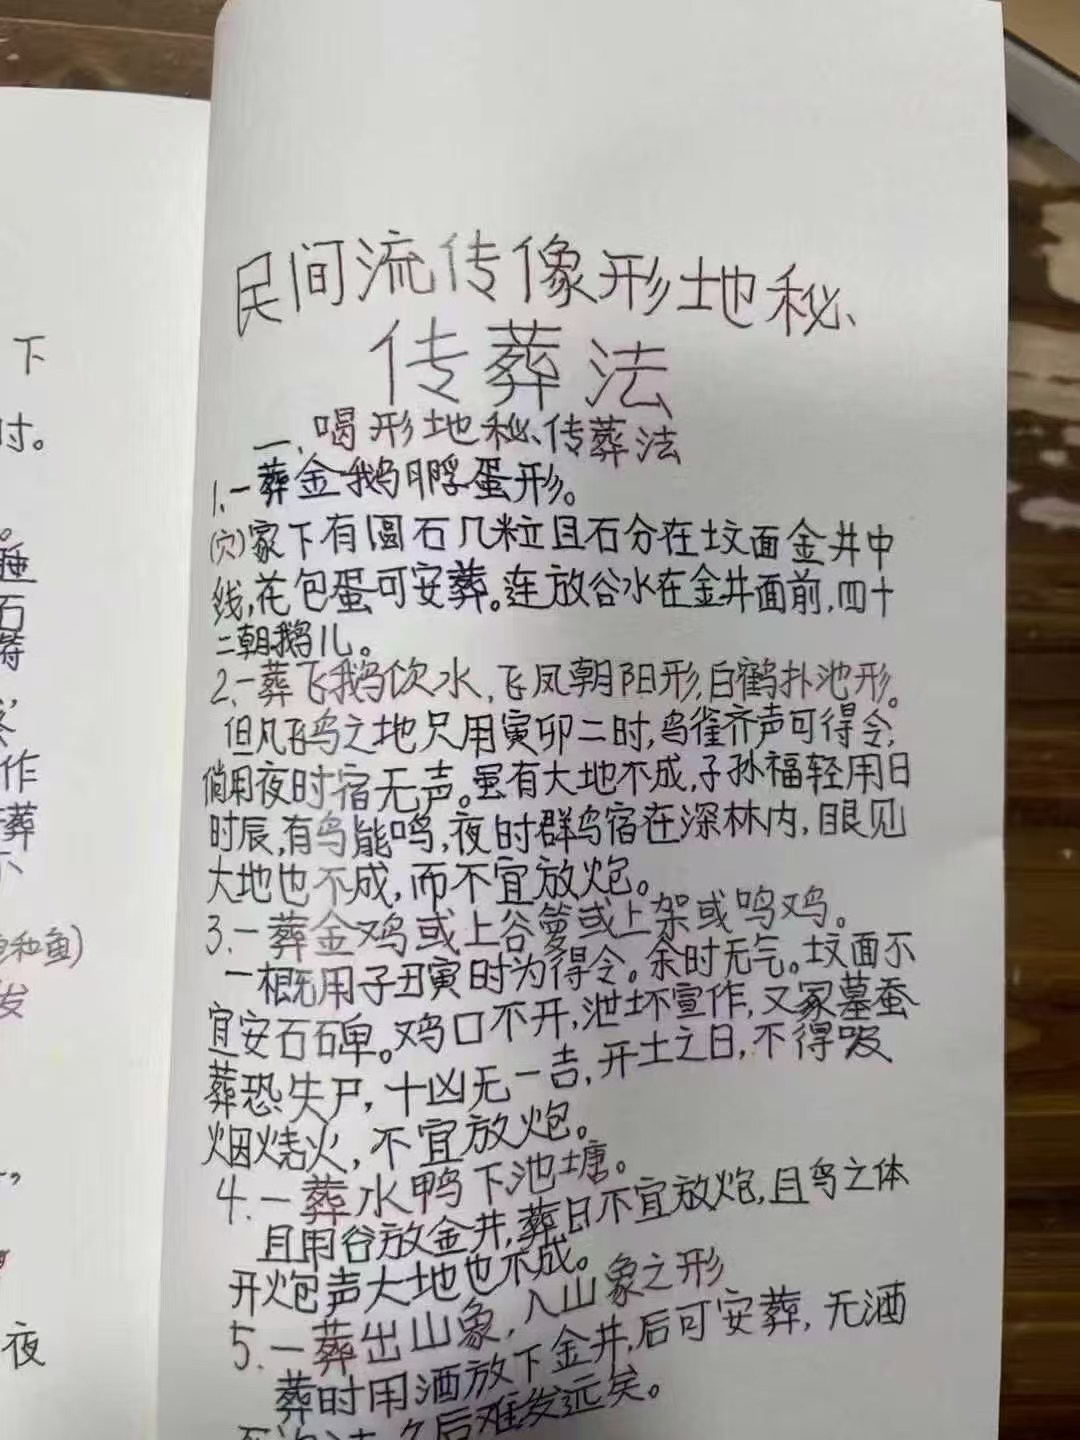 民间流传像形地秘
传葬法
一、喝形地秘传葬法
1.一葬金鹅孵蛋形。
(穴)家下有圆石几粒且石分在坟面金井中
线,花包蛋可安葬。连放谷水在金井面前,四十
二朝鹅儿。
2.一葬飞鹅饮水,飞凤朝阳形,白鹤扑池形。
但凡飞鸟之地只用寅卯二时,鸟雀齐声可得令,
倘用夜时宿无声。虽有大地不成,子孙福轻用日
时辰,有鸟能鸣,夜时群鸟宿在深林内,眼见
大地也不成,而不宜放炮。
3.一葬金鸡或上谷箩或上架或鸣鸡。
一概用子丑寅时为得令。余时无气。坟面不
宜安石碑。鸡口不开,泄坏宣作,又冢墓蚕
葬恐失尸,十凶无一吉,开土之日,不得吸
烟烧火,不宜放炮。
4.一葬水鸭下池塘。
且用谷放金井,葬日不宜放炮,且鸟之体
开炮声大地也不成。
5.一葬出山象,入山象之形
葬时用酒放下金井,后可安葬,无酒
久后难发远矣。
下
时。
。
睡
石
等
,
作
葬
和鱼)
发
,
夜